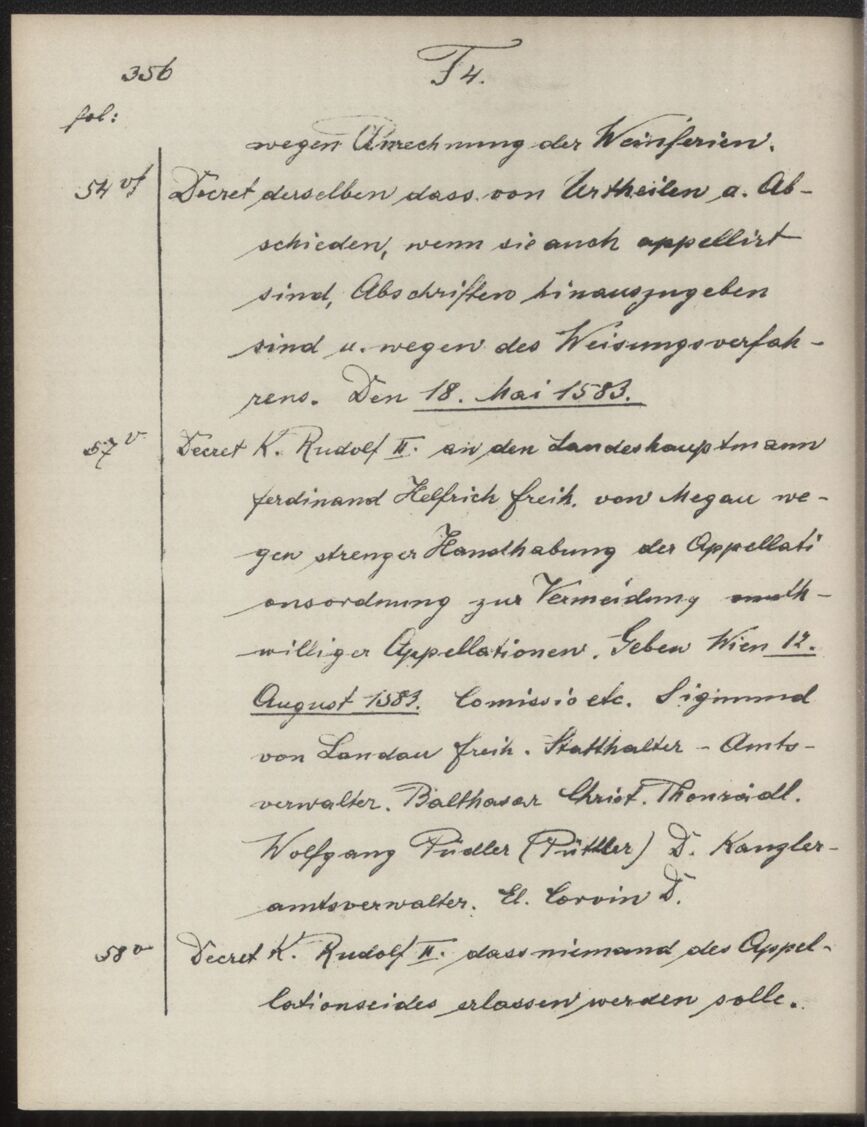 356 F 4.
fol:
wegen Anrechnung der Weinferien.
54 vf Decret derselben dass von Urtheilen a. Ab-
schieden, wenn sie auch appellirt
sind, Abschriften hinauszugeben
sind u. wegen des Weisungsverfah-
rens. Den 18. Mai 1583.
57 v Decret K. Rudolf II. an den Landeshauptmann
Ferdinand Helfrich freih. von Megau we-
gen strenger Handhabung der Appellati
onsordnung zur Vermeidung muth-
williger Appellationen. Geben Wien 12.
August 1583. Comissio etc. Sigmund
von Landau freih. Statthalter - Amts-
verwalter. Balthasar Christ. Thonrädl.
Wolfgang Püdler (Püttler) D. Kanzler-
amtsverwalter. El. Corvin D.
58 v Decret K. Rudolf II. dass niemand des Appel-
lationseides erlassen werden solle.